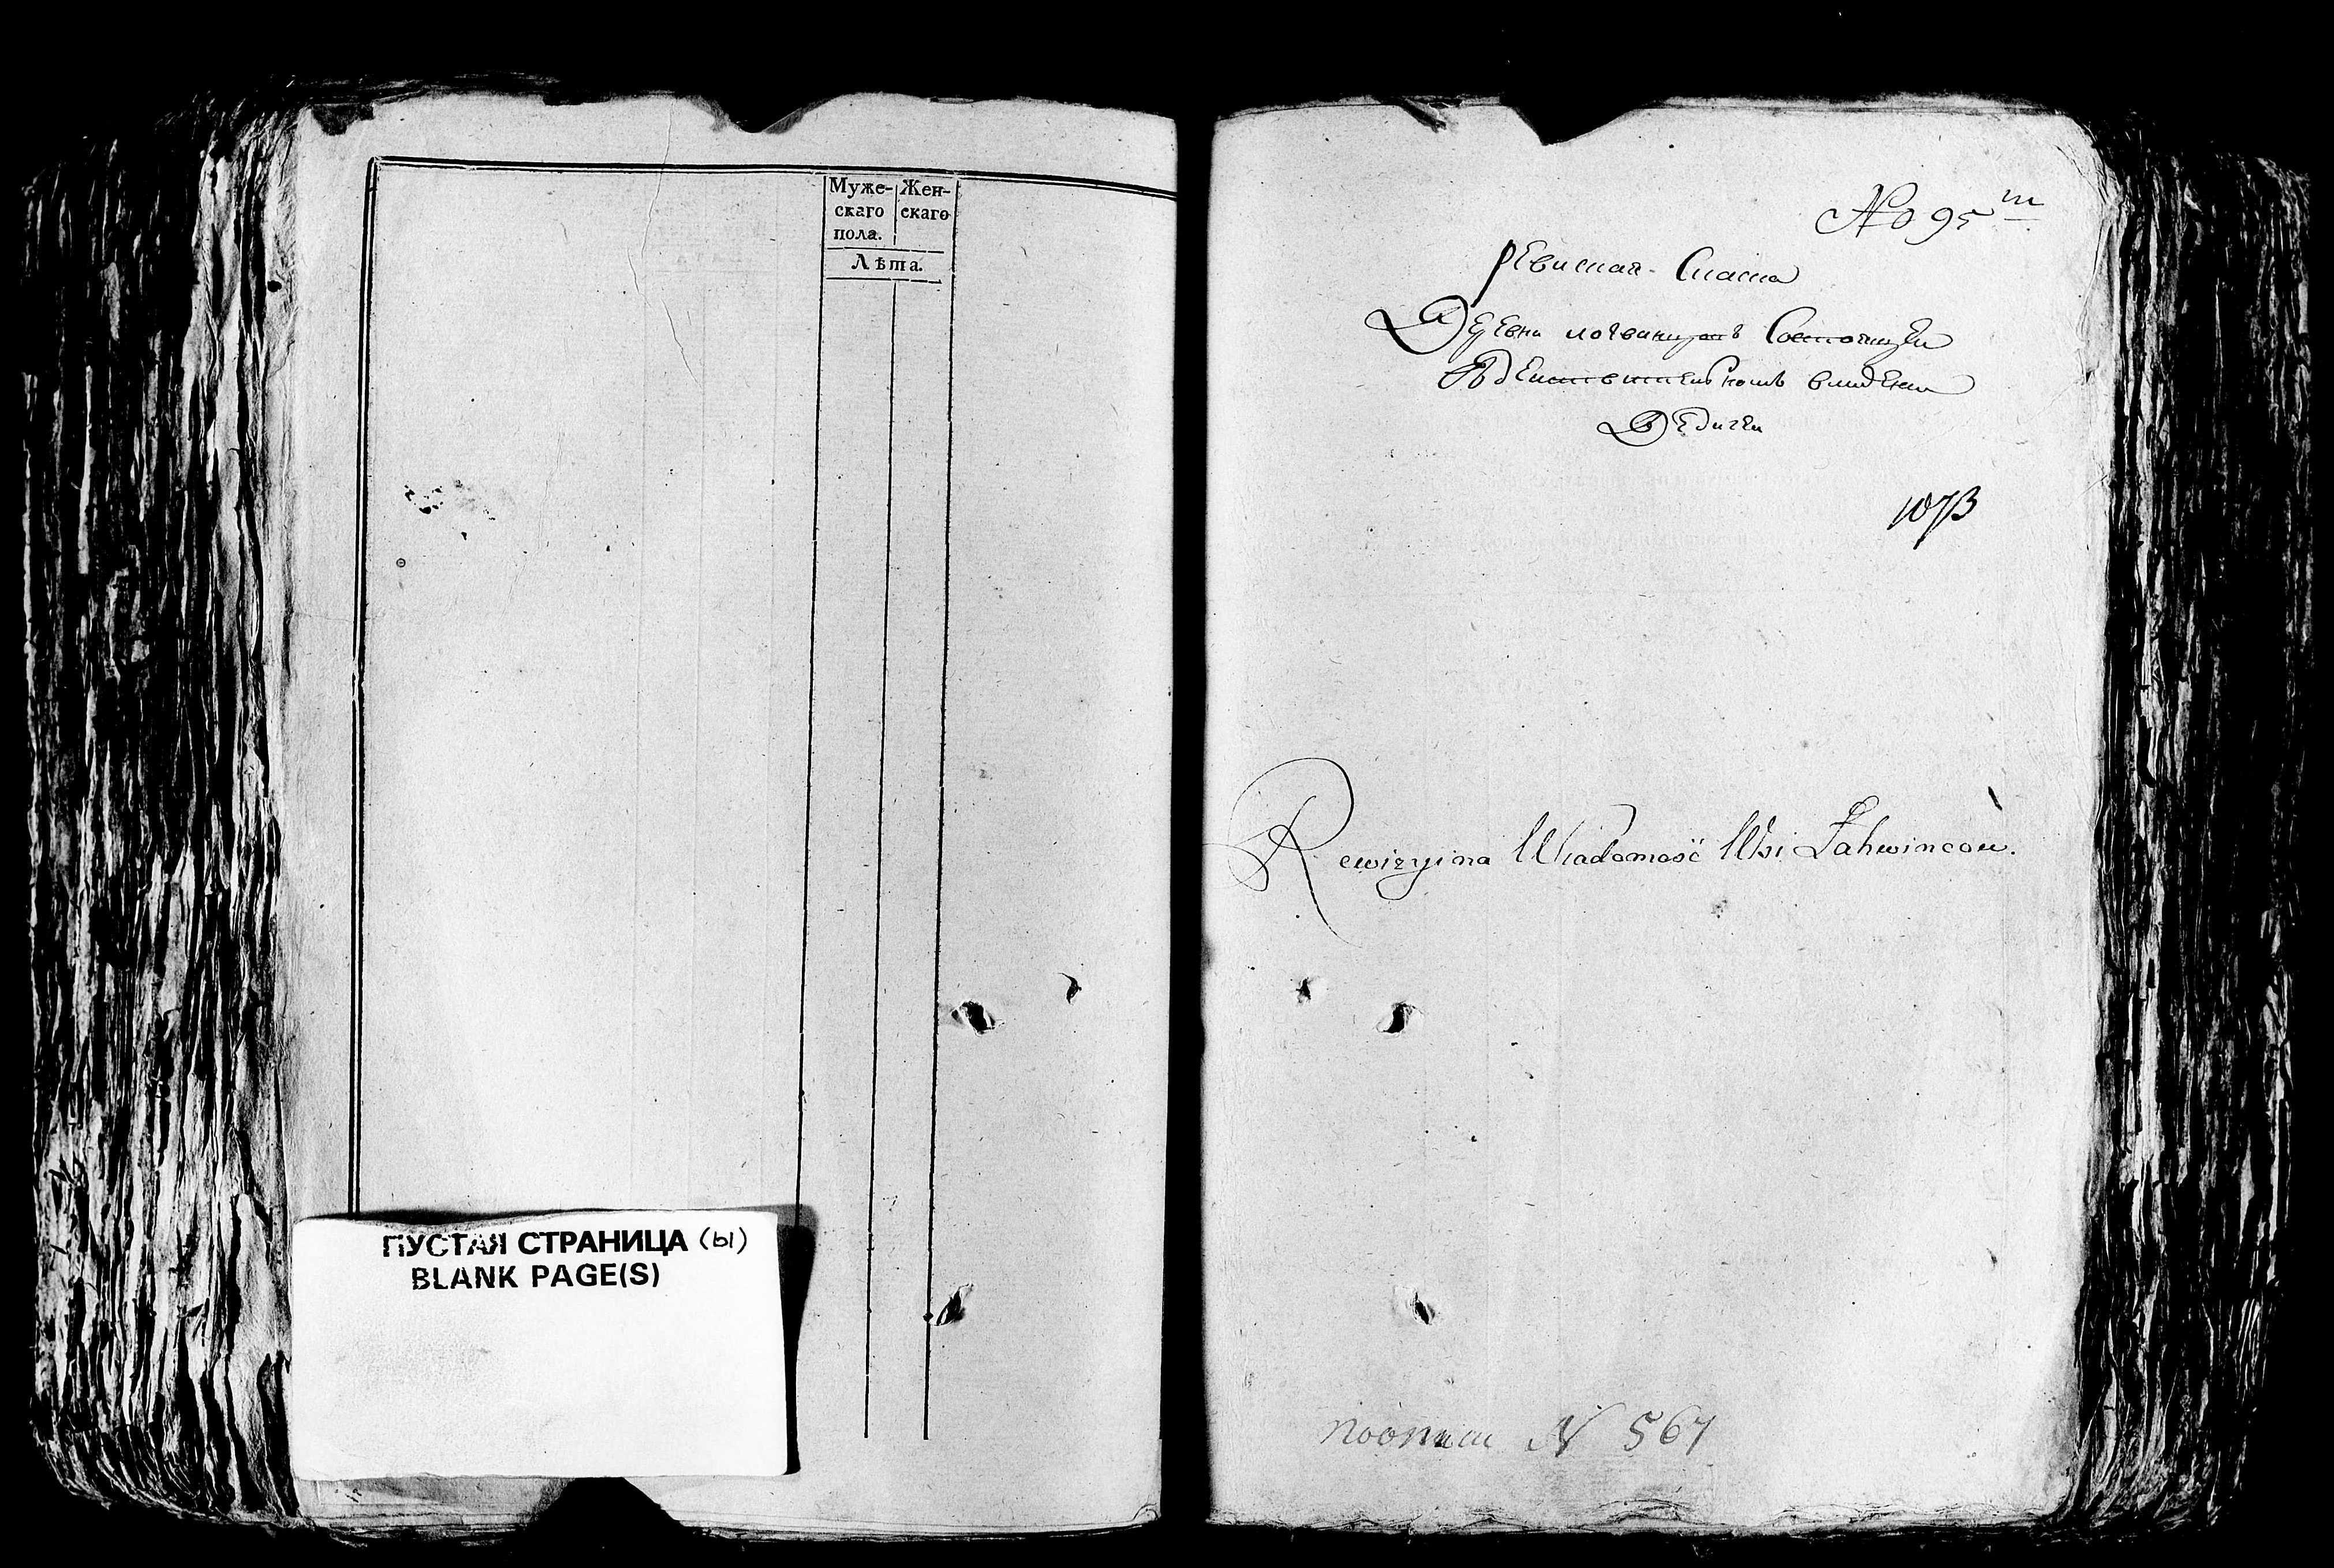 Муже-
скаго
пола.
Жен-
скаго
Лѣта.
ПУСТАЯ СТРАНИЦА (ы)
BLANK PAGE(S)
№ 95
ревиская Сказка
Деревни
владении
1073
Rewizyina Wiadomość Wsi Łahwincow.
по описи N 567